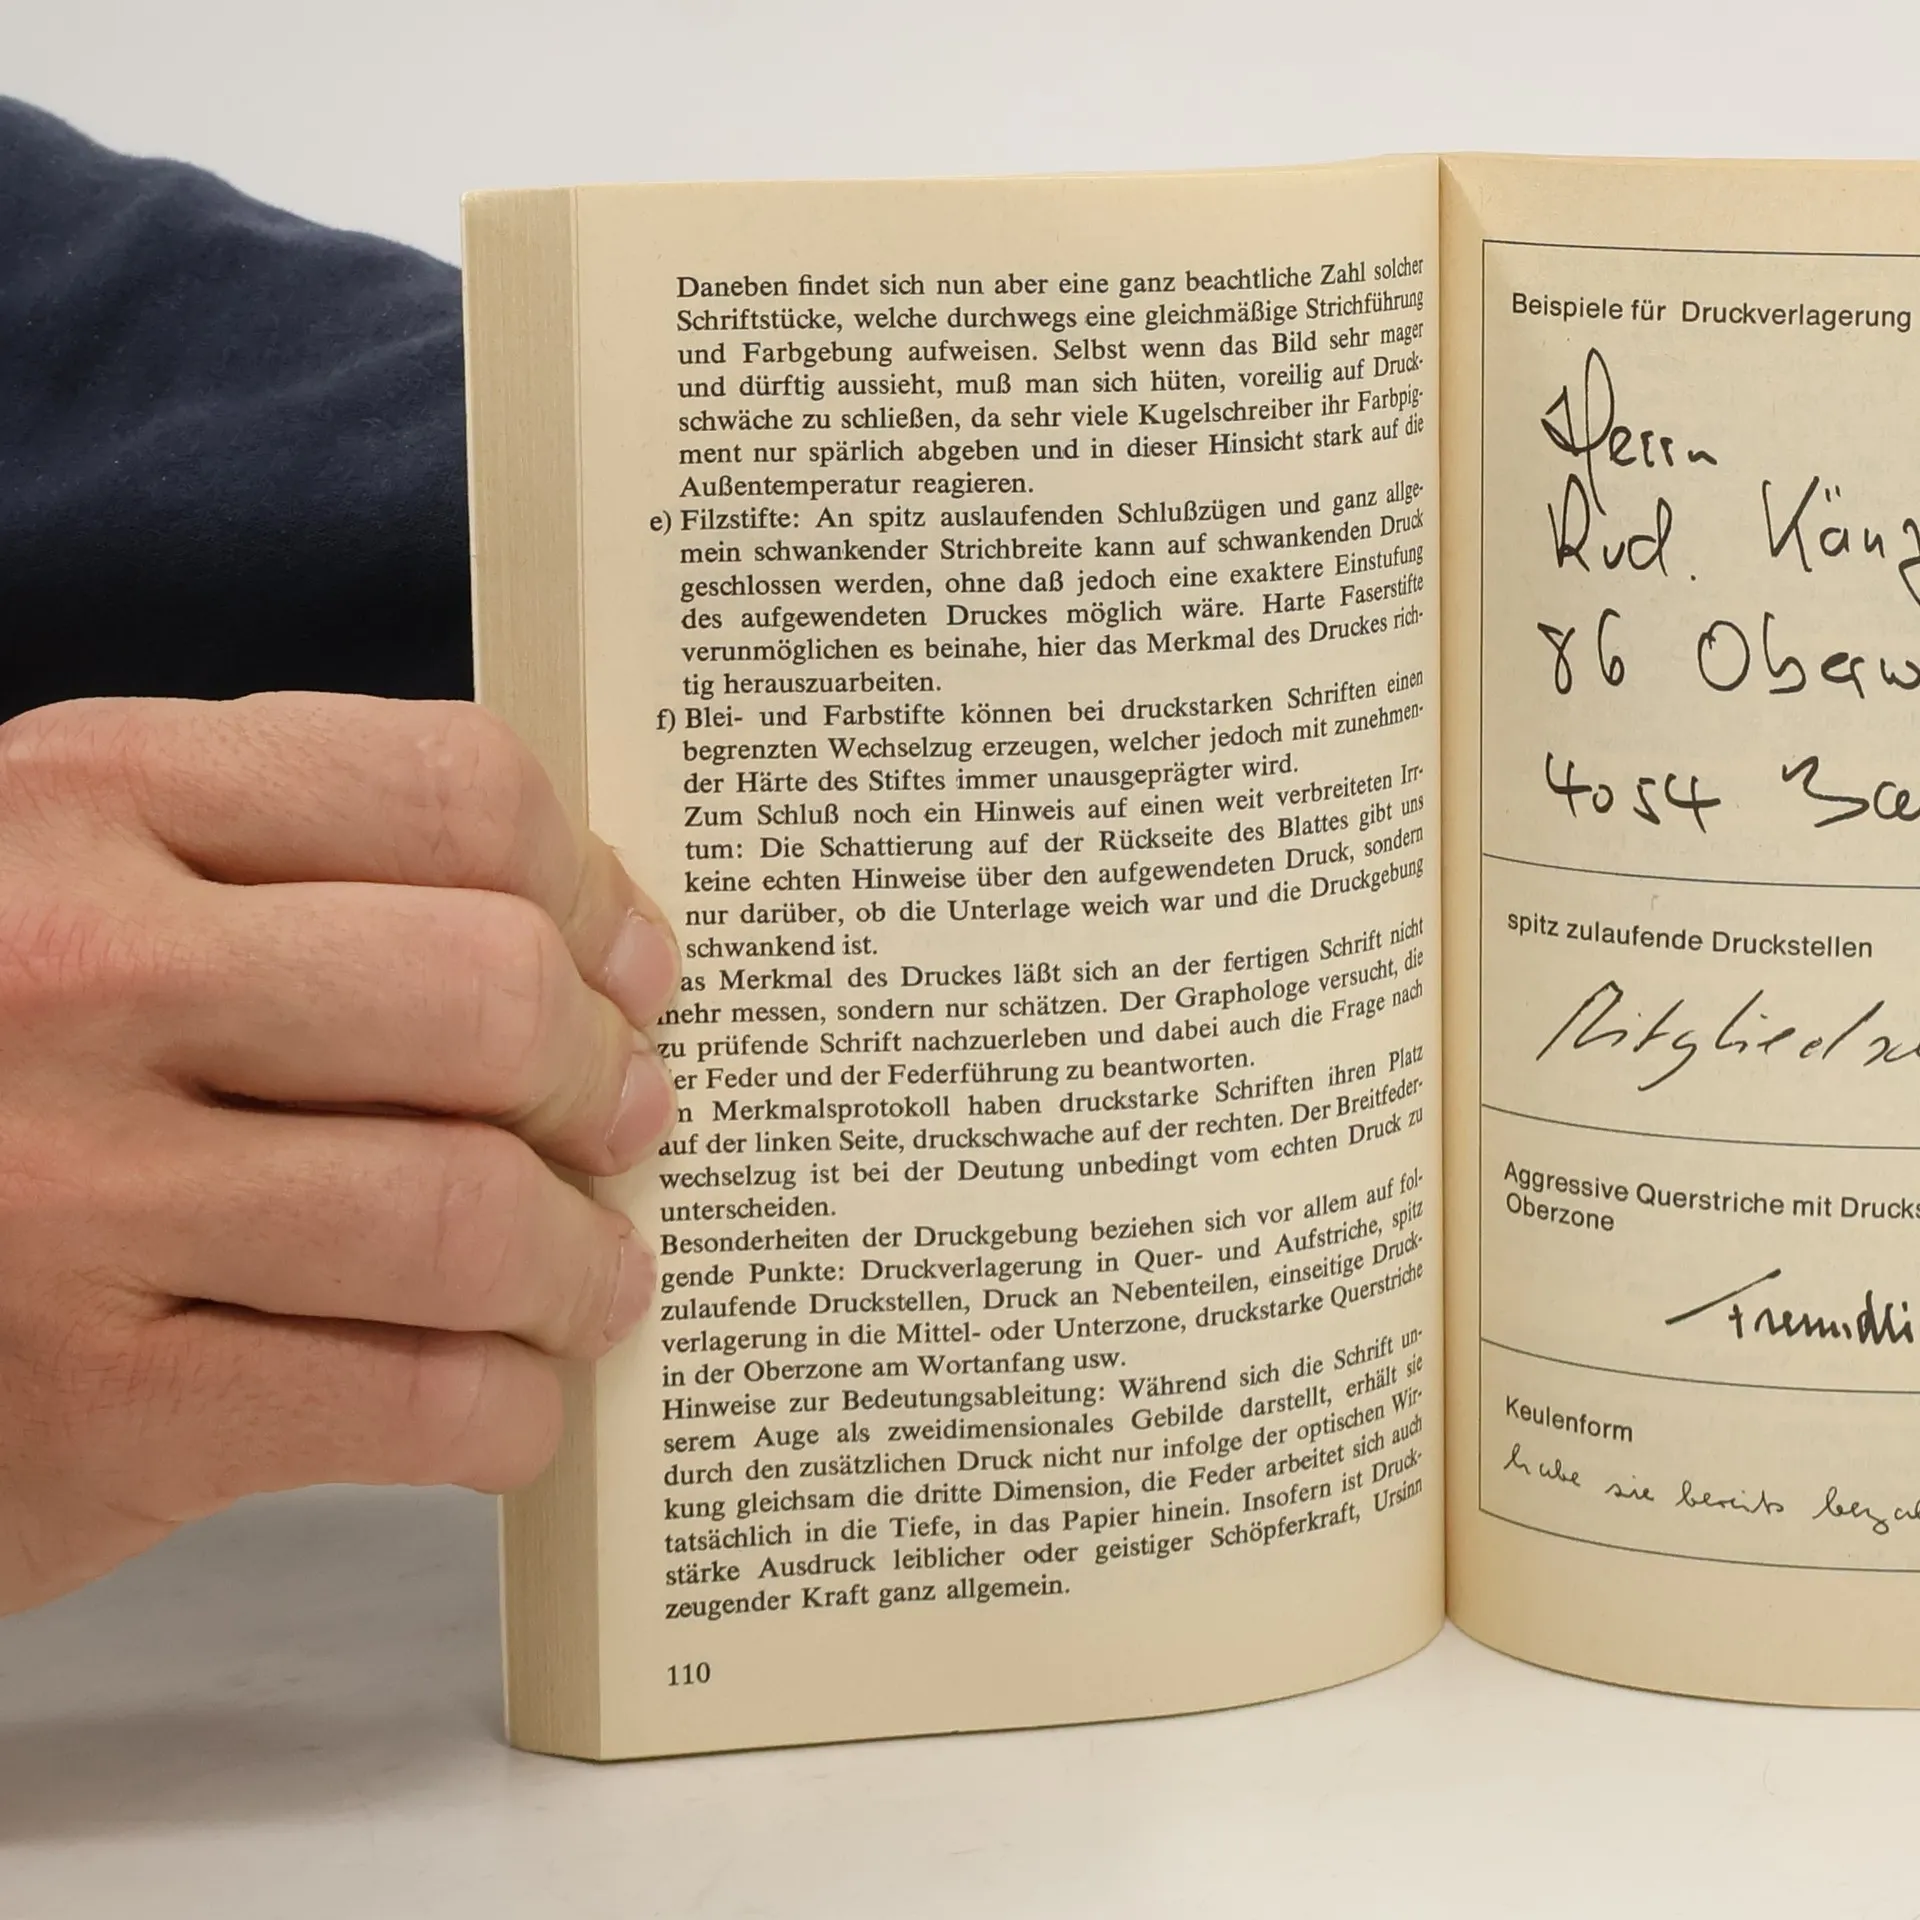 Daneben findet sich nun aber eine ganz beachtliche Zahl solcher
Schriftstücke, welche durchwegs eine gleichmäßige Strichführung
und Farbgebung aufweisen. Selbst wenn das Bild sehr mager
und dürftig aussieht, muß man sich hüten, voreilig auf Druck-
schwäche zu schließen, da sehr viele Kugelschreiber ihr Farbpig-
ment nur spärlich abgeben und in dieser Hinsicht stark auf die
Außentemperatur reagieren.
e) Filzstifte: An spitz auslaufenden Schlußzügen und ganz allge-
mein schwankender Strichbreite kann auf schwankenden Druck
geschlossen werden, ohne daß jedoch eine exaktere Einstufung
des aufgewendeten Druckes möglich wäre. Harte Faserstifte
verunmöglichen es beinahe, hier das Merkmal des Druckes rich-
tig herauszuarbeiten.
f) Blei- und Farbstifte können bei druckstarken Schriften einen
begrenzten Wechselzug erzeugen, welcher jedoch mit zunehmen-
der Härte des Stiftes immer unausgeprägter wird.
Zum Schluß noch ein Hinweis auf einen weit verbreiteten Irr-
tum: Die Schattierung auf der Rückseite des Blattes gibt uns
keine echten Hinweise über den aufgewendeten Druck, sondern
nur darüber, ob die Unterlage weich war und die Druckgebung
schwankend ist.
as Merkmal des Druckes läßt sich an der fertigen Schrift nicht
mehr messen, sondern nur schätzen. Der Graphologe versucht, die
zu prüfende Schrift nachzuerleben und dabei auch die Frage nach
er Feder und der Federführung zu beantworten.
n Merkmalsprotokoll haben druckstarke Schriften ihren Platz
auf der linken Seite, druckschwache auf der rechten. Der Breitfeder-
wechselzug ist bei der Deutung unbedingt vom echten Druck zu
unterscheiden.
Besonderheiten der Druckgebung beziehen sich vor allem auf fol-
gende Punkte: Druckverlagerung in Quer- und Aufstriche, spitz
zulaufende Druckstellen, Druck an Nebenteilen, einseitige Druck-
verlagerung in die Mittel- oder Unterzone, druckstarke Querstriche
in der Oberzone am Wortanfang usw.
Hinweise zur Bedeutungsableitung: Während sich die Schrift un-
serem Auge als zweidimensionales Gebilde darstellt, erhält sie
durch den zusätzlichen Druck nicht nur infolge der optischen Wir-
kung gleichsam die dritte Dimension, die Feder arbeitet sich auch
tatsächlich in die Tiefe, in das Papier hinein. Insofern ist Druck-
stärke Ausdruck leiblicher oder geistiger Schöpferkraft, Ursinn
zeugender Kraft ganz allgemein.
110
Beispiele für Druckverlagerung
Herrn
Rud. Känz
86 Oberw
4054
spitz zulaufende Druckstellen
Mitgliedsc
Aggressive Querstriche mit Drucks
Oberzone
Fremdli
Keulenform
habe sie bereits beza